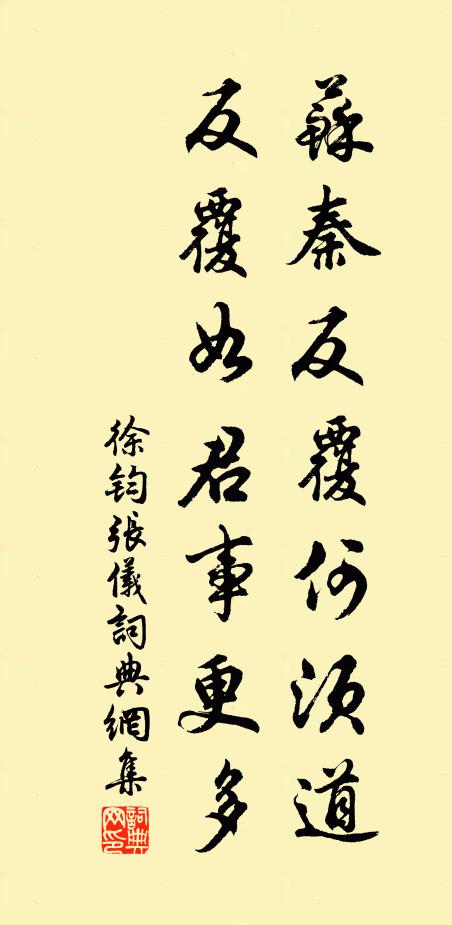 蘇秦反覆何須道
反覆如君事更多
徐鈞張儀詞典網集
詞典
网印